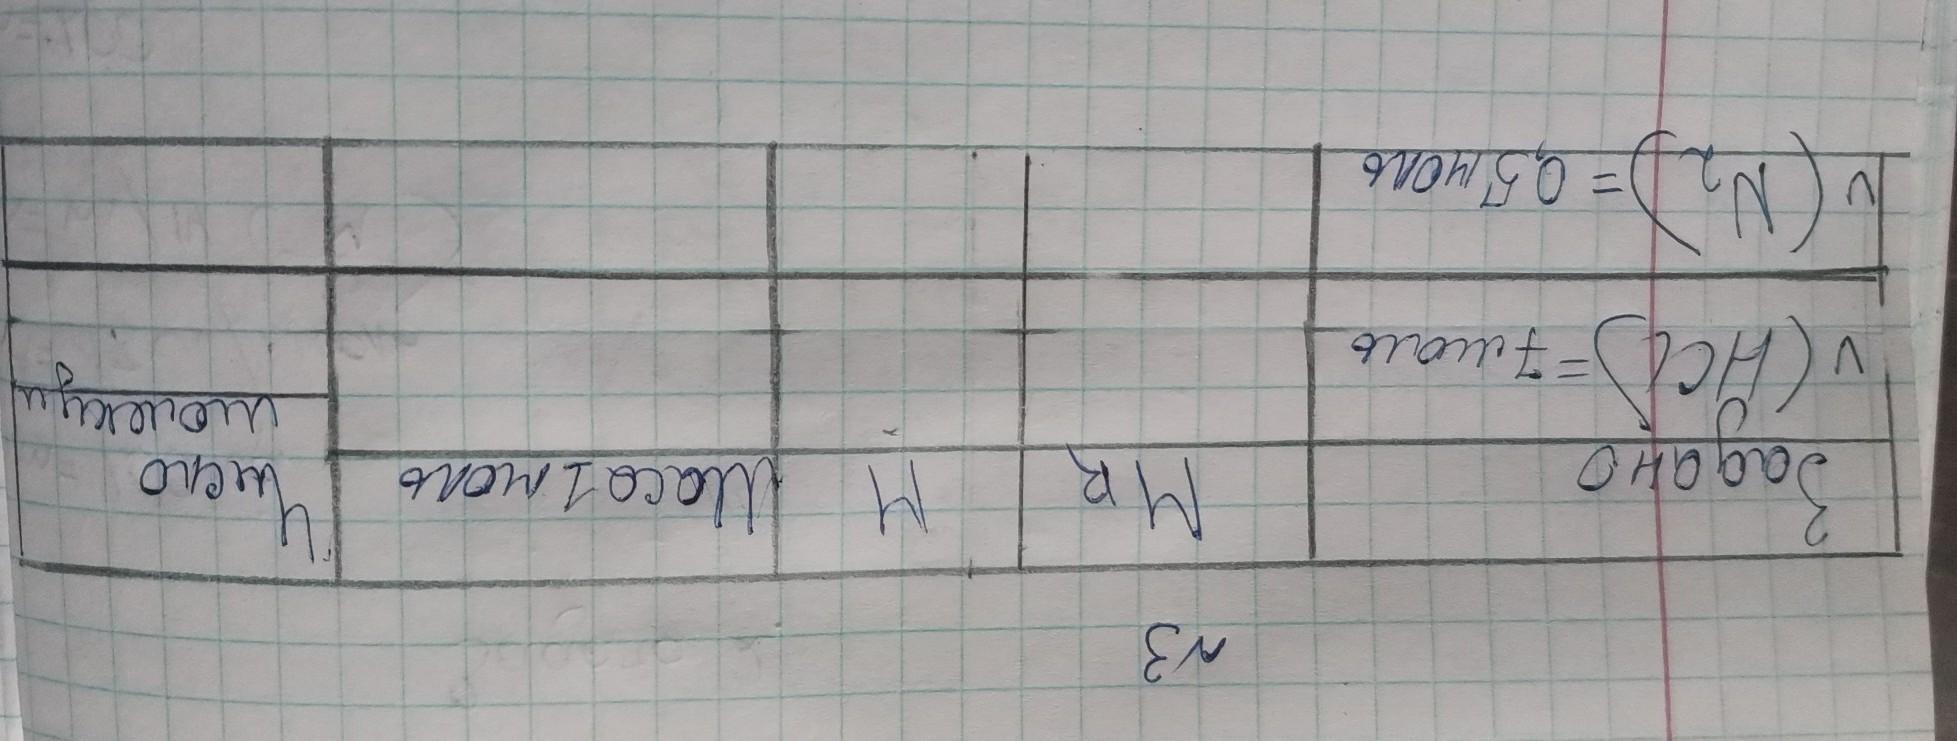 №3
Задано Mr M Маса 1 моль Число
молекул
ν(HCl) = 7 моль
ν(N₂) = 0,5 моль